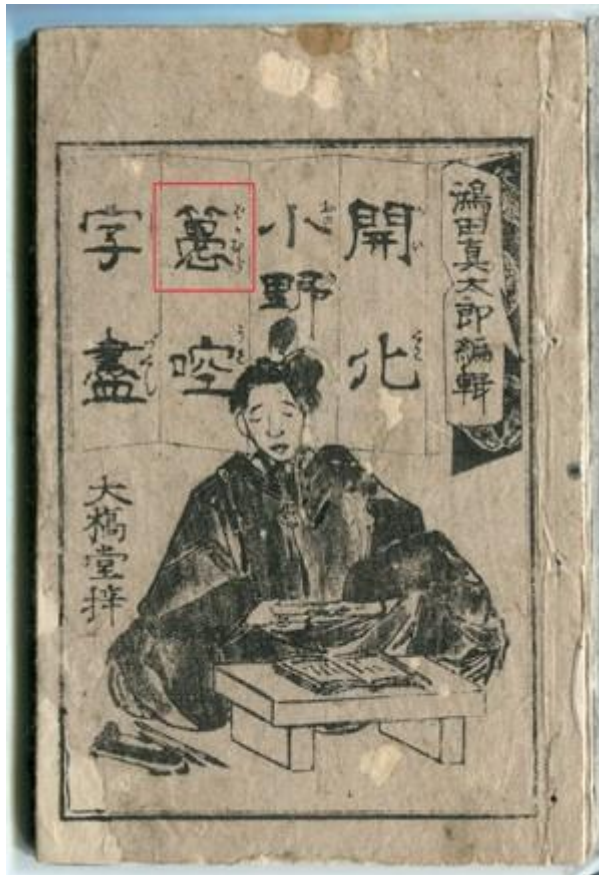 鴻田真太郎編輯
開化
小野
𥶡啌
字盡
大橋堂梓